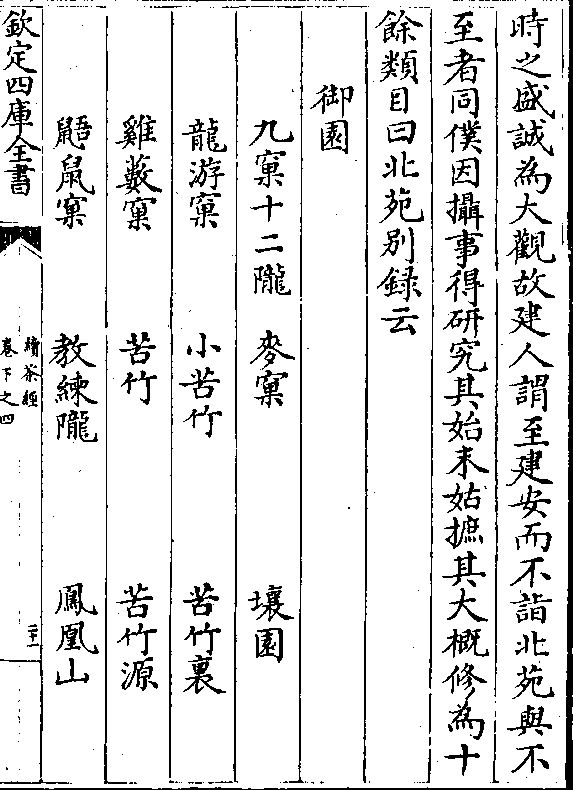 時之盛誠為大觀故建人謂至建安而不詣北苑與不
至者同僕因攝事得研究其始末姑摭其大概修為十
餘類目曰北苑别録云
御園
九窠十二隴　麥窠　壤園
龍游窠　小苦竹　苦竹裏
雞藪窠　苦竹　苦竹源
鼯鼠窠　教練隴　鳳凰山
欽定四庫全書
續茶經
卷下之四